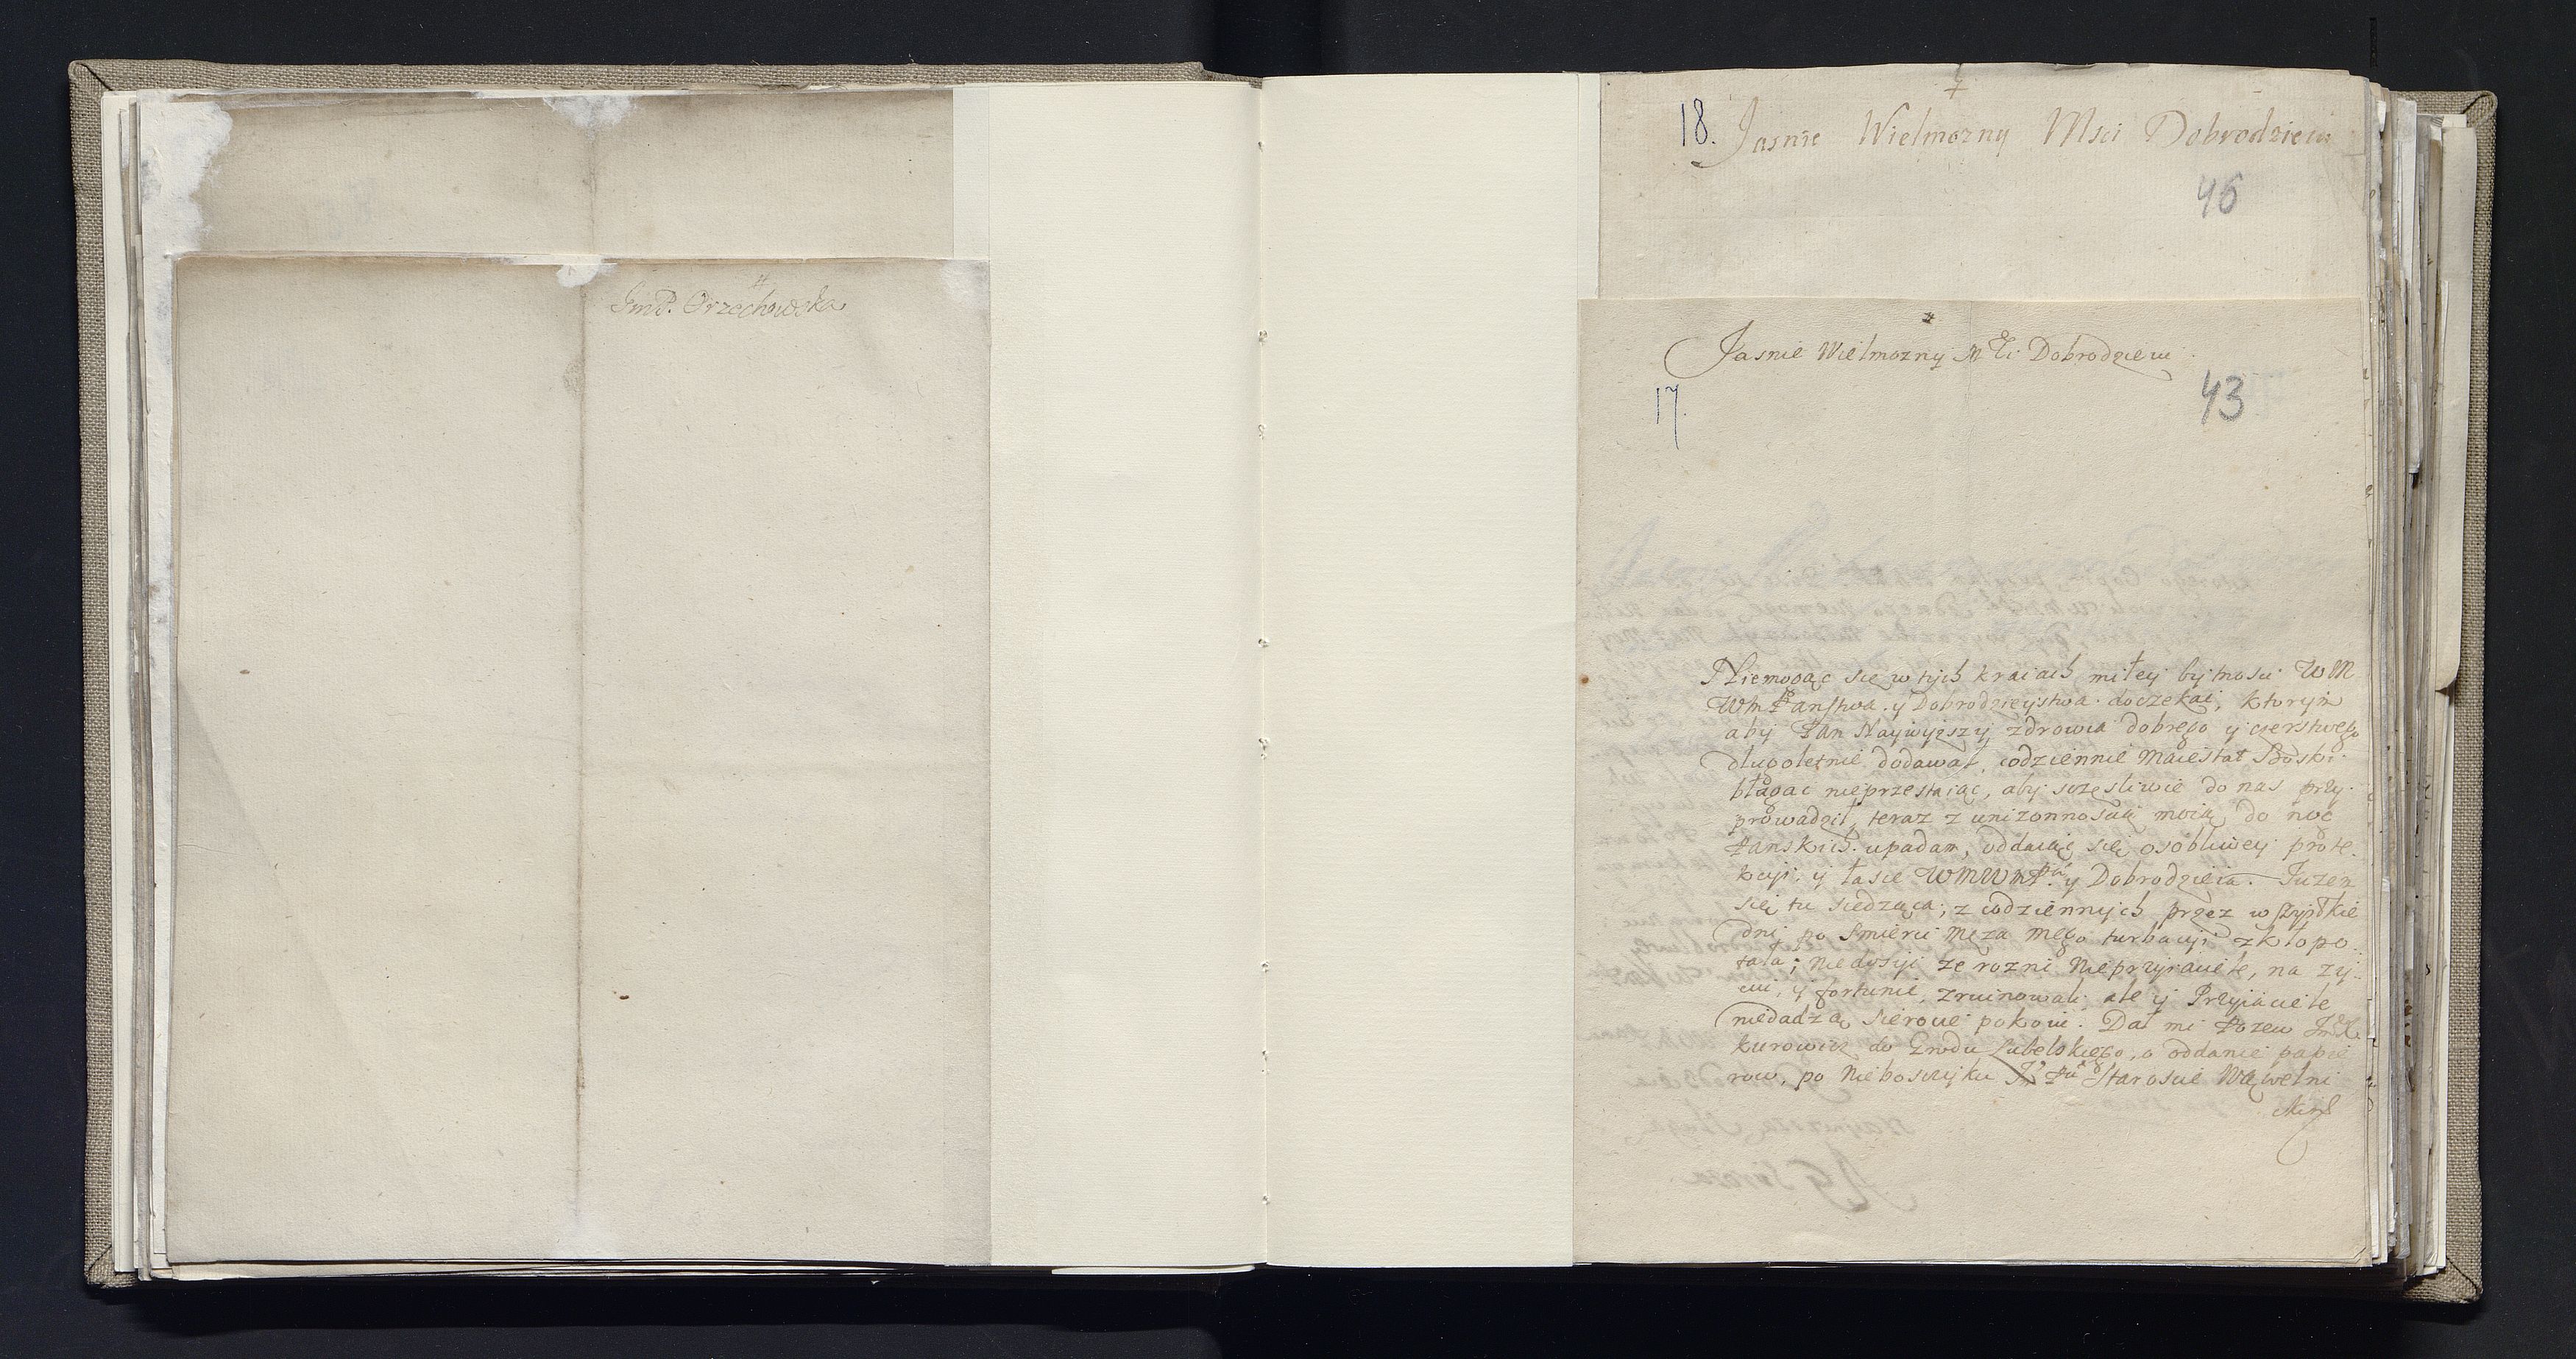 #
JmP. Orzechowska
+
18. Jasnie Wielmozny Msci Dobrodzieiu
46
#
Jasnie Wielmozny Mći Dobrodzieiu
17.
43
Niemogąc się w tych kraiach miłey bytnosci WM
WmPanstwa. y Dobrodzieystwa. doczekać, ktorym
aby Pan Naywyzszy zdrowia dobrego y czerstwego
długoletnie dodawał, codziennie Maiestat Boski.
błagac nieprzestaiąc, aby sczęsliwie do nas przy.
prowadził, teraz z unizonnoscią moią do nog
Panskich. upadam, oddaiąc się osobliwey prote.
kcyi, y łasce WMWMPa. y Dobrodzieia. Juzem
się tu siedząca, z codziennych przez wszystkie
dni po smierci męza mego turbacyi zkłopo.
tała; niedosyc ze rozni Nieprzyiaciele, na zy.
ciu, y fortunie, zruinowali, ale y Przyiaciele
niedadzą sierocie pokoiu. Dał mi Pozew
kurowicz do Grodu Lubelskiego, o oddanie papie
row, po Nieboszczyku Staroscie Wąwelni
ckim